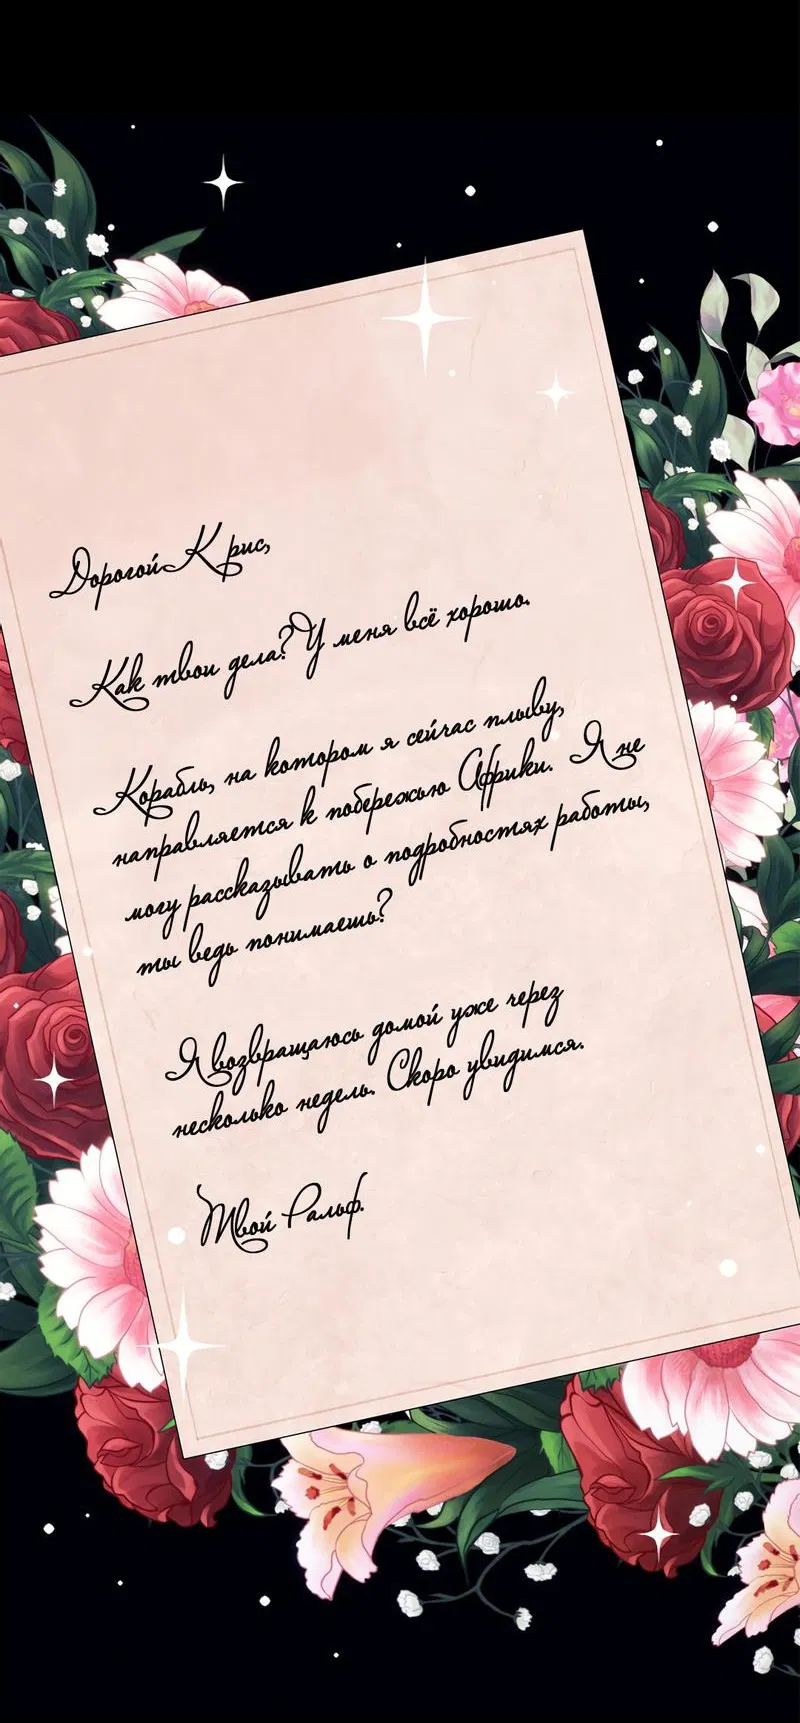 Дорогой Крис,
Как твои дела? У меня всё хорошо.
Корабль, на котором я сейчас плыву,
направляется к побережью Африки. Я не
могу рассказывать о подробностях работы,
ты ведь понимаешь?
Я возвращаюсь домой уже через
несколько недель. Скоро увидимся.
Твой Ральф.